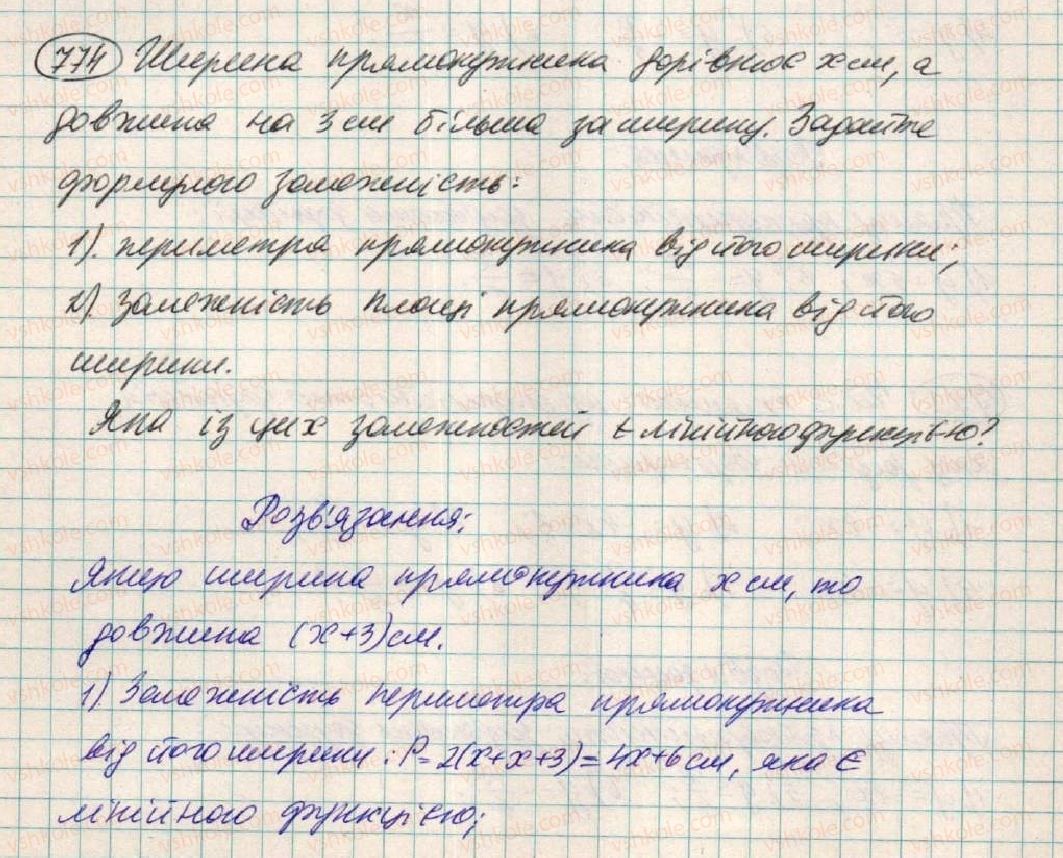 774 Ширина прямокутника дорівнює x см, а
довжина на 3 см більша за ширину. Задайте
формулою залежність:
1). периметра прямокутника від його ширини;
2). залежність площі прямокутника від його
ширини.
Яка із цих залежностей є лінійною функцією?
Розв'язання:
Якщо ширина прямокутника x см, то
довжина (x+3) см.
1). Залежність периметра прямокутника
від його ширини: P = 2(x+x+3) = 4x+6 см, яка є
лінійною функцією;